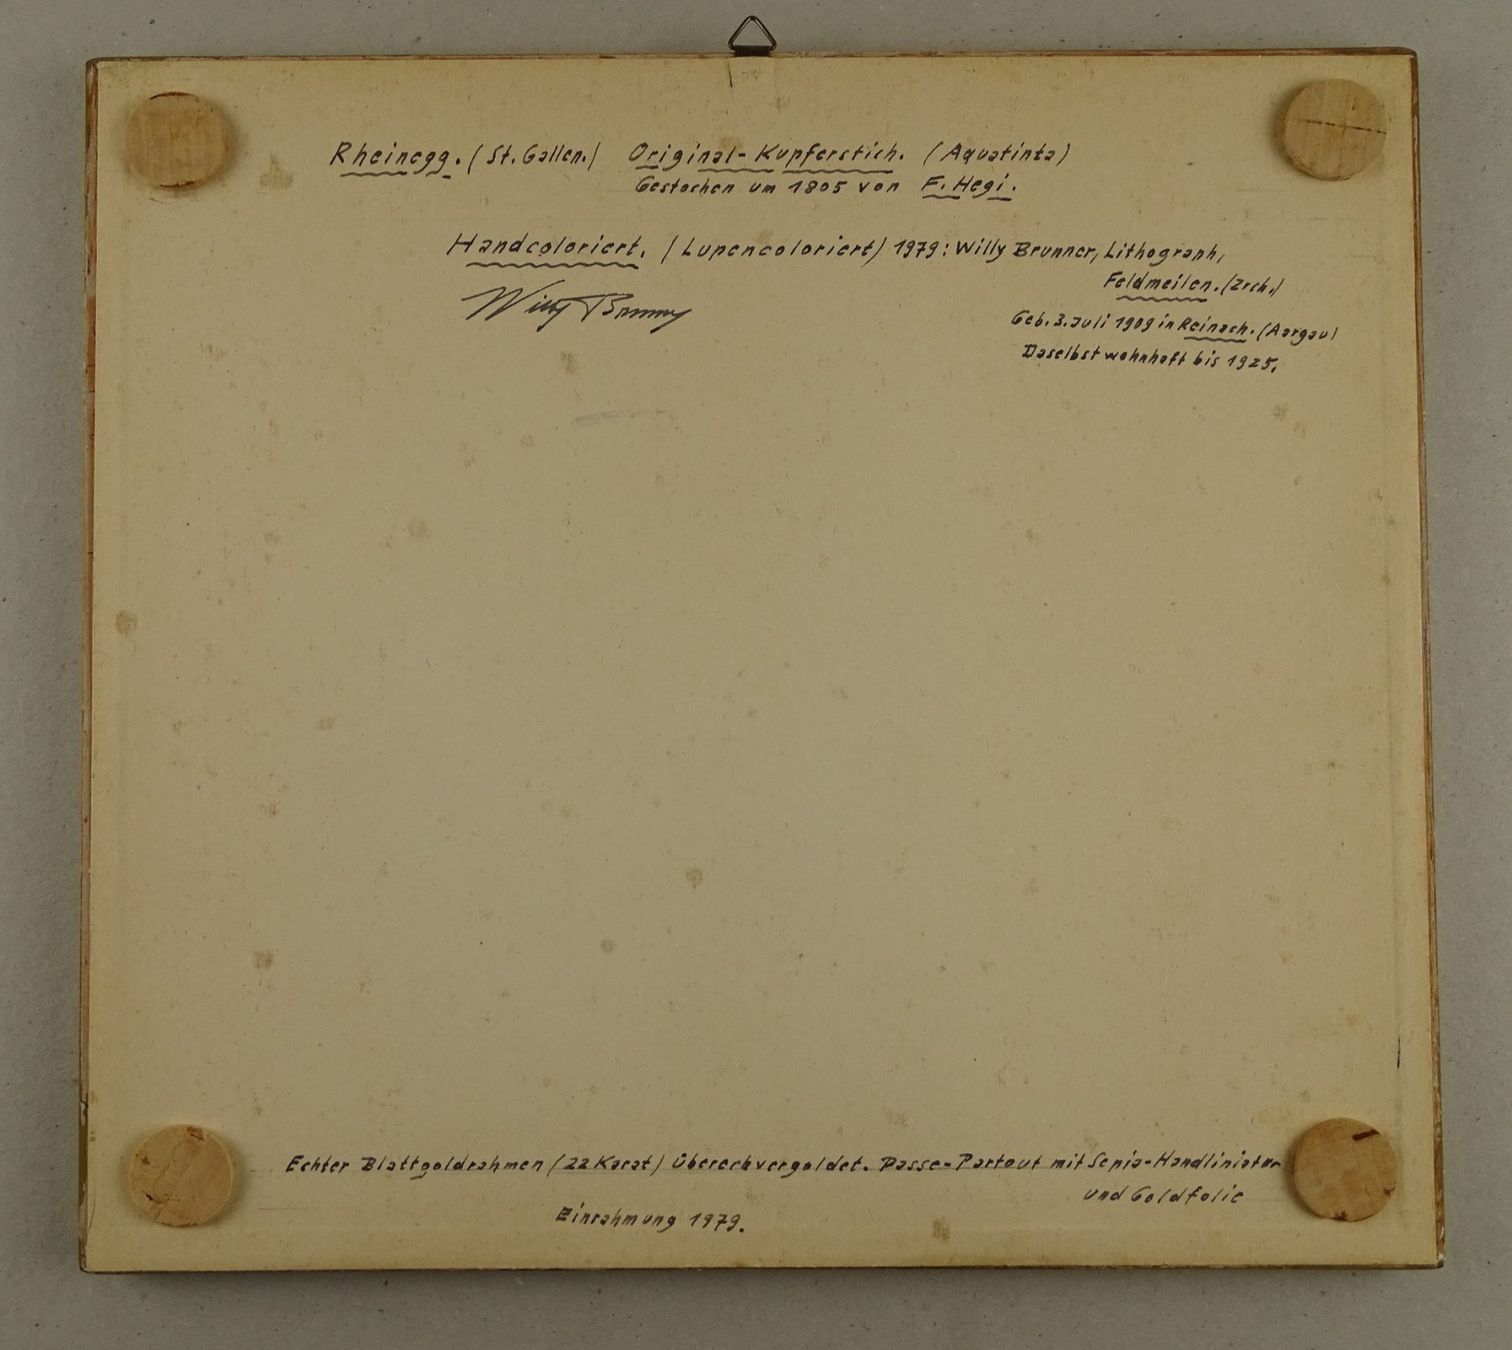 Rheinegg. (St. Gallen.) Original-Kupferstich. (Aquatinta)
Gestochen um 1805 von F. Hegi.
Handcoloriert. (Lupencoloriert) 1979: Willy Brunner, Lithograph,
Feldmeilen. (Zrch.)
Willy Brunner
Geb. 3. Juli 1909 in Reinach. (Aargau)
Daselbst wohnhaft bis 1925.
Echter Blattgoldrahmen (22 Karat) überechvergoldet. Passe-Partout mit Sepia-Handliniatur
und Goldfolie
Einrahmung 1979.